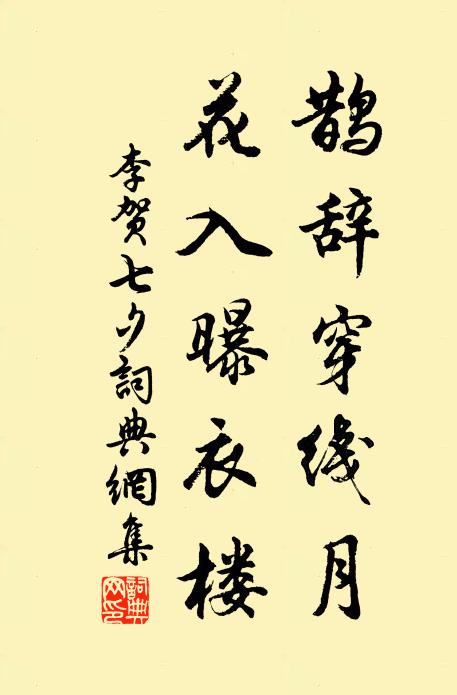 鹊辞穿线月
花入曝衣楼
李贺七夕詞典網集
詞典网印